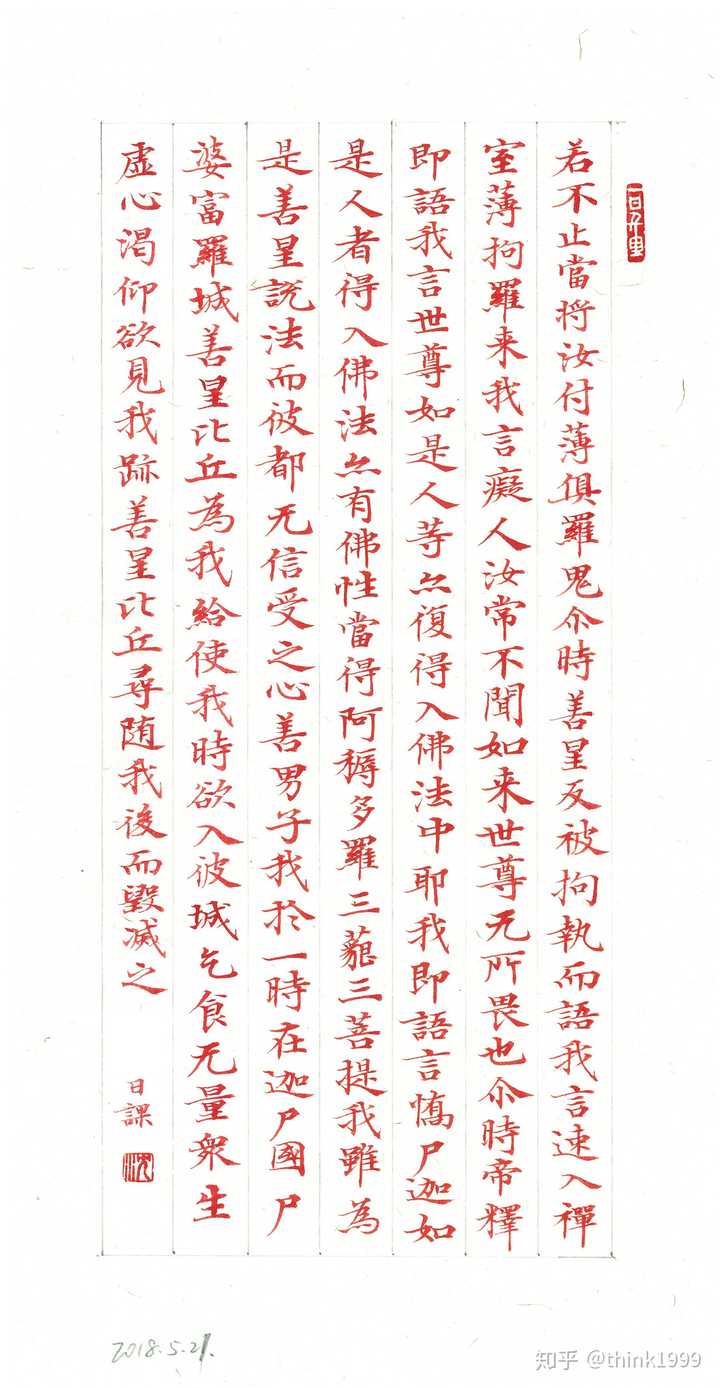 一日千里
若不止當将汝付薄俱羅鬼尒時善星反被拘執而語我言速入禪
室薄拘羅来我言癡人汝常不聞如来世尊无所畏也尒時帝釋
即語我言世尊如是人等亦復得入佛法中耶我即語言憍尸迦如
是人者得入佛法亦有佛性當得阿耨多羅三藐三菩提我雖為
是善星說法而彼都无信受之心善男子我於一時在迦尸國尸
婆富羅城善星比丘為我給使我時欲入彼城乞食无量衆生
虛心渴仰欲見我跡善星比丘尋随我後而毀滅之
日課
沈
2018.5.21.
知乎 @think1999